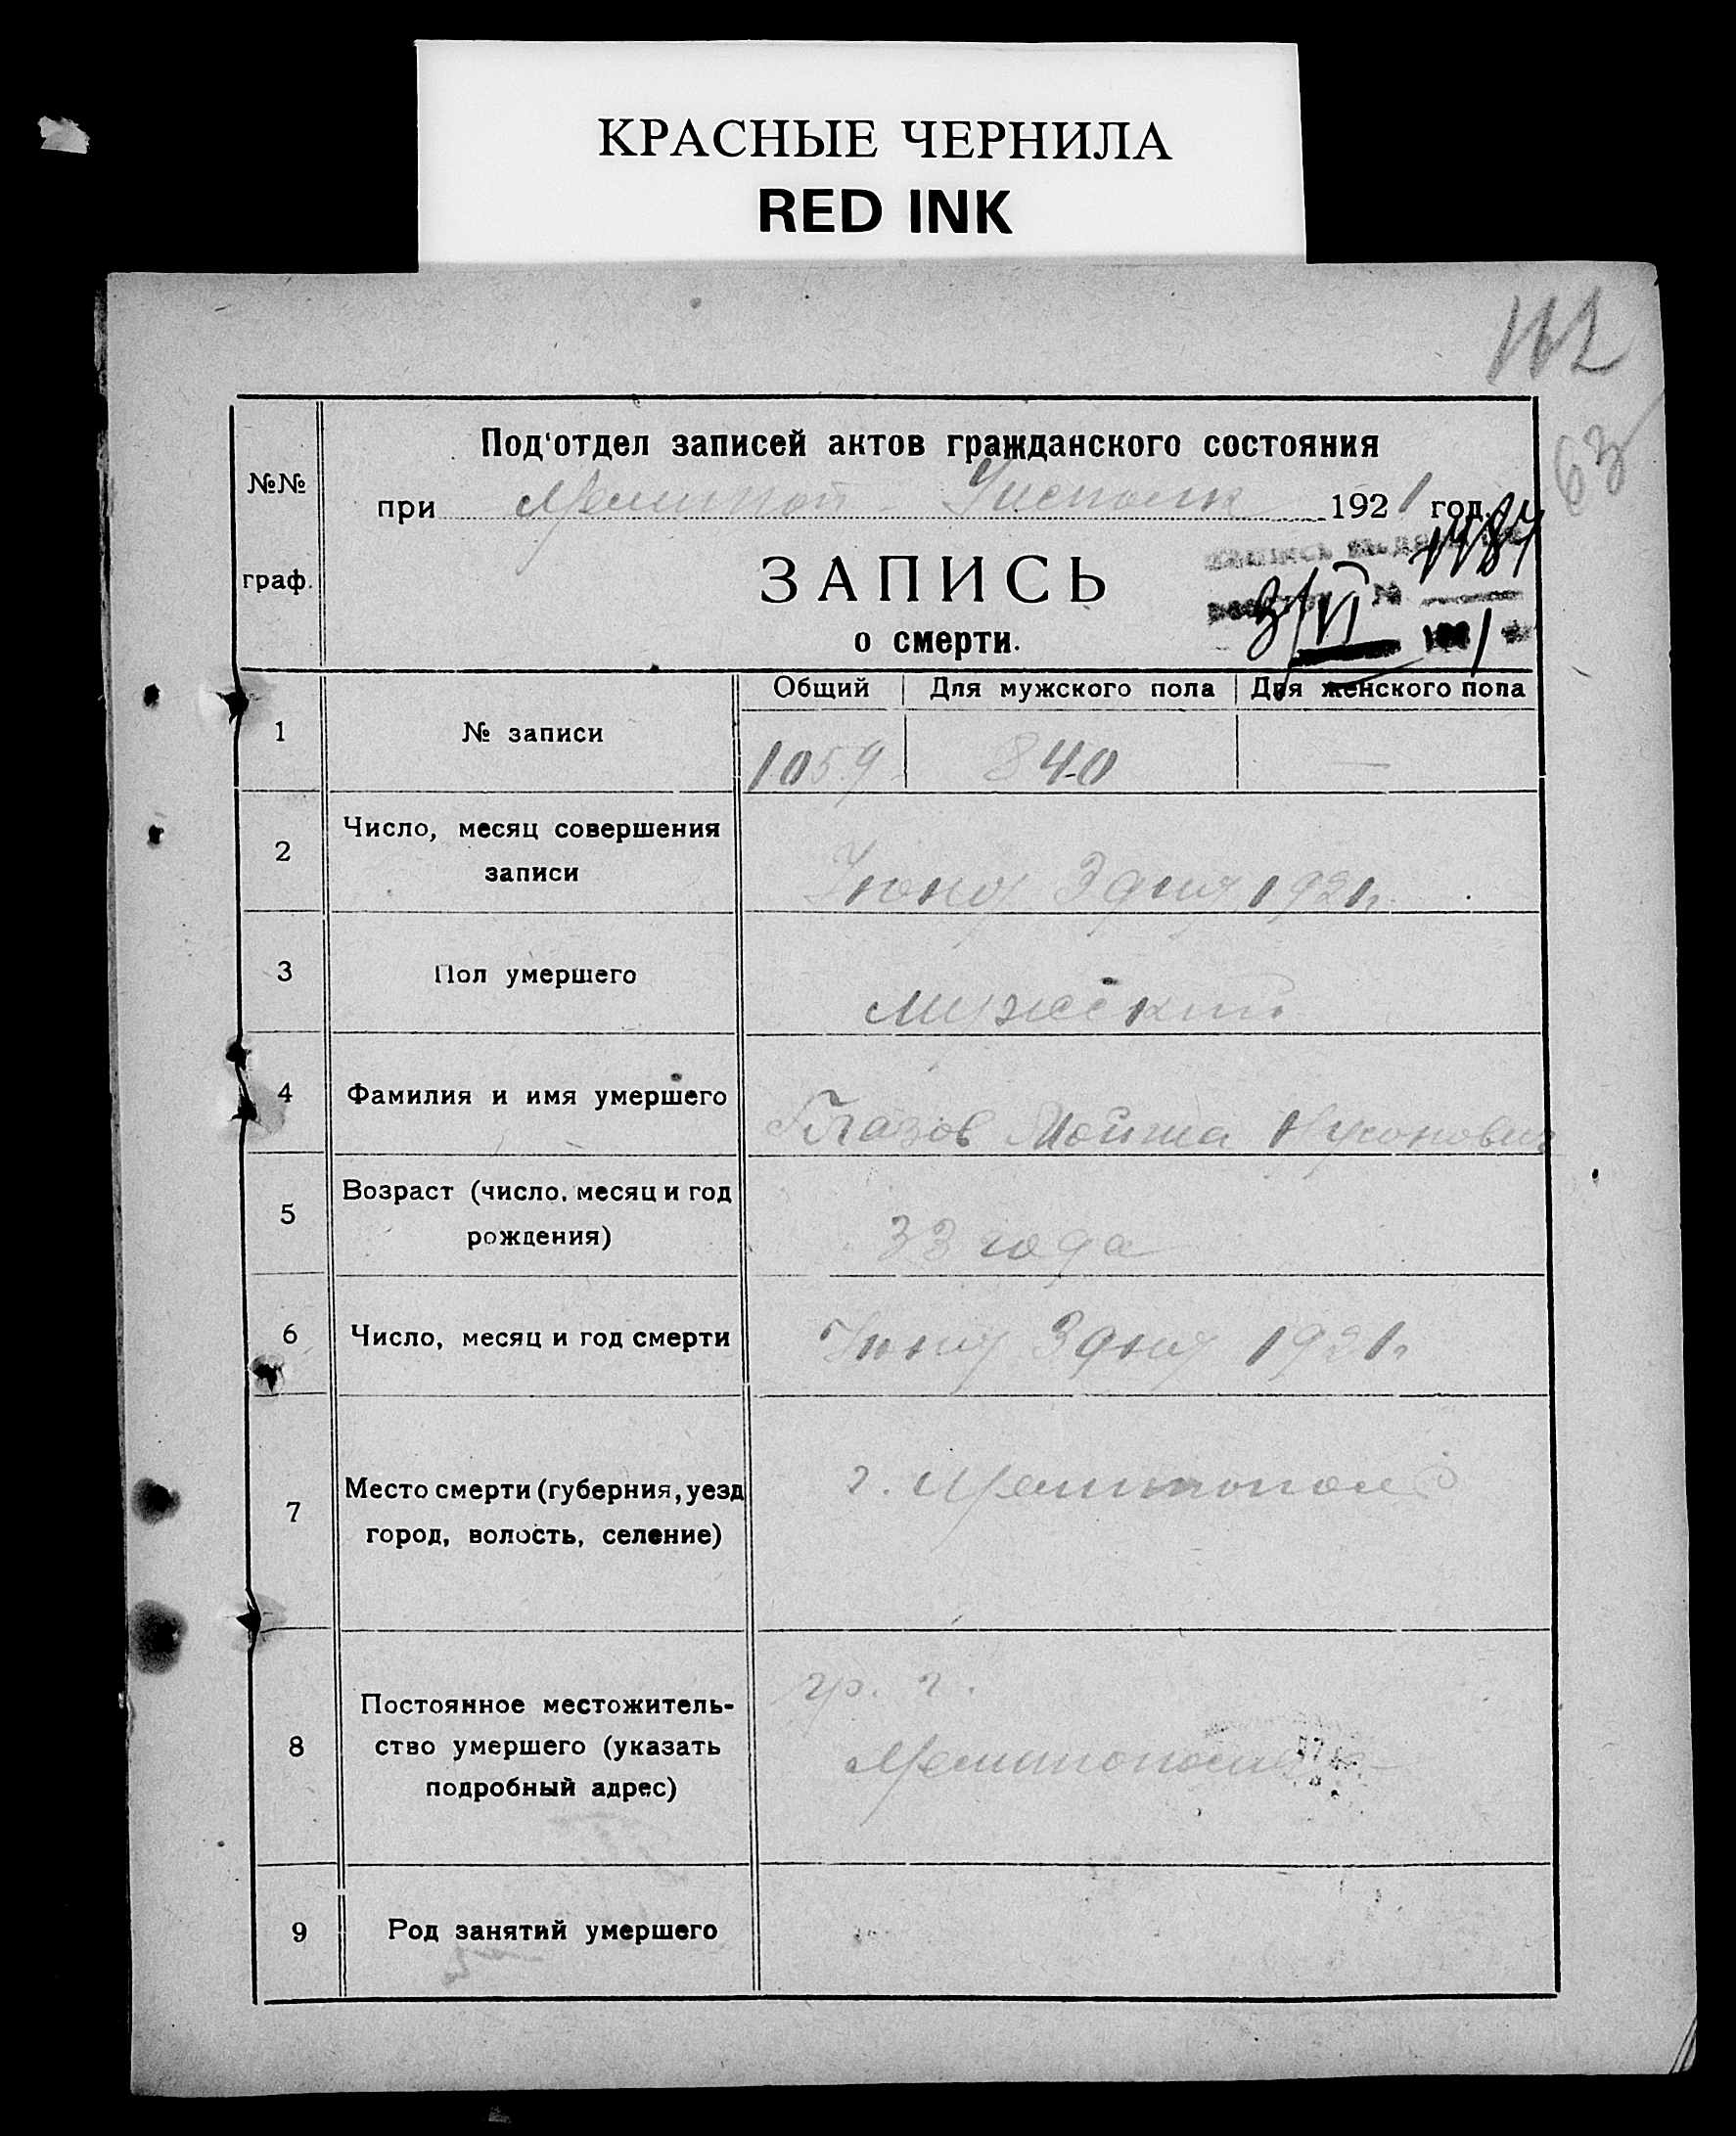 КРАСНЫЕ ЧЕРНИЛА
RED INK
112
63
Под'отдел записей актов гражданского состояния
№№
при Мелитоп Исполк 1921 год.
запись
1184
граф.
ЗАПИСЬ
3/VI №
1
о смерти.
Общий Для мужского пола Для женского пола
1 № записи
1059 840 —
2 Число, месяц совершения
записи
Июня 3 дня 1921г.
3 Пол умершего
Мужский
4 Фамилия и имя умершего
Глазов Мойша Нухонович
5 Возраст (число, месяц и год
рождения)
33 года
6 Число, месяц и год смерти
Июня 3 дня 1921г.
7 Место смерти (губерния, уезд
город, волость, селение)
г. Мелитополь
8 Постоянное местожитель-
ство умершего (указать
подробный адрес)
гр. г.
Мелитополя
9 Род занятий умершего